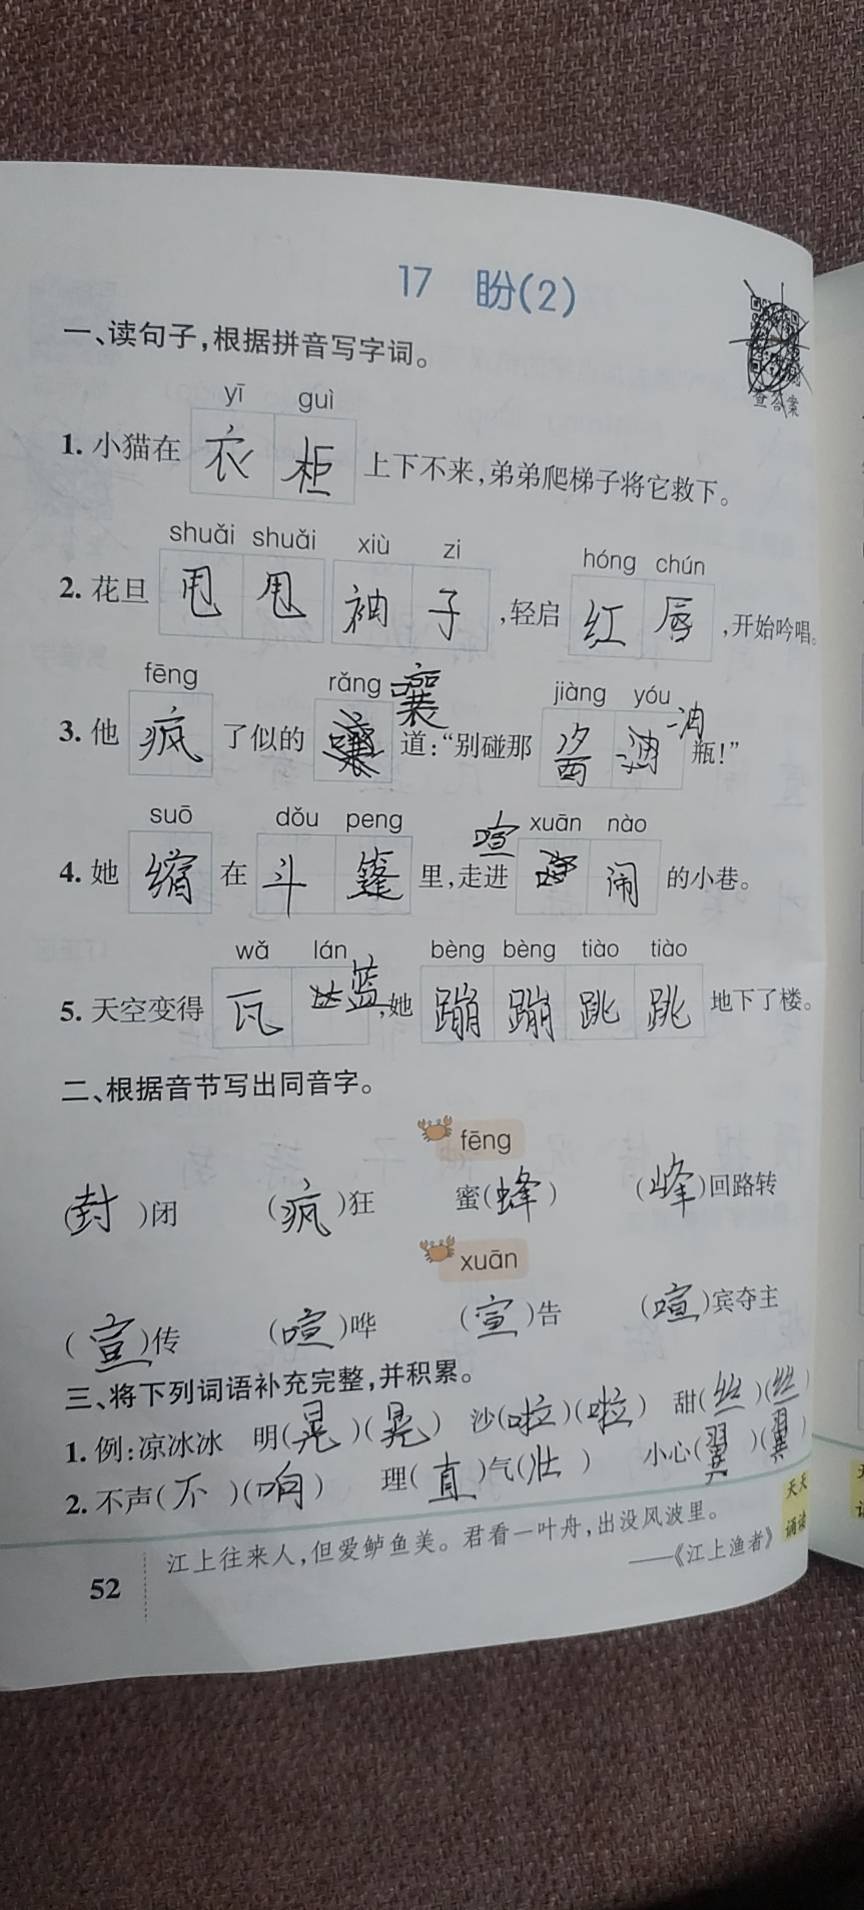 17 盼(2)
查答案
一、读句子,根据拼音写字词。
yī guì
1. 小猫在 衣柜 上下不来,弟弟爬梯子将它救下。
shuǎi shuǎi xiù zi hóng chún
2. 花旦 甩甩 袖子 ,轻启 红唇 ,开始吟唱。
fēng rǎng jiàng yóu
3. 他 疯 了似的 道:“别碰那 油 瓶!”
suō dǒu peng xuān nào
4. 她 缩 在 斗篷 里,走进 喧闹 的小巷。
wǎ lán bèng bèng tiào tiào
5. 天空变得 瓦蓝 ,她 蹦蹦跳跳 地下了楼。
二、根据音节写出同音字。
fēng
(封)闭 (疯)狂 蜜(蜂) (峰)回路转
xuān
(宣)传 (喧)哗 (宣)告 (喧)宾夺主
三、将下列词语补充完整,并积累。
1. 例:凉冰冰 明(晃)(晃) 沙(啦)(啦) 甜(丝)(丝)
2. 不声(不)(响) 理(直)气(壮) 小心(翼)(翼)
天天
诵读
江上往来人,但爱鲈鱼美。君看一叶舟,出没风波里。
——《江上渔者》
52